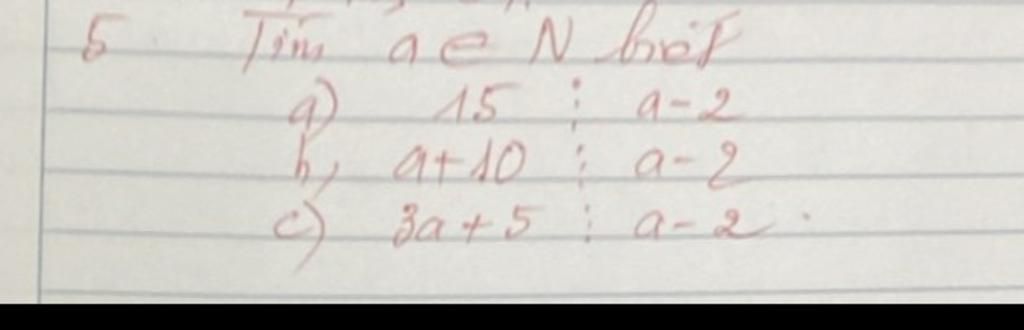 5 Tìm a ∈ N biết
a) 15 ⋮ a-2
b, a+10 ⋮ a-2
c) 3a+5 ⋮ a-2.